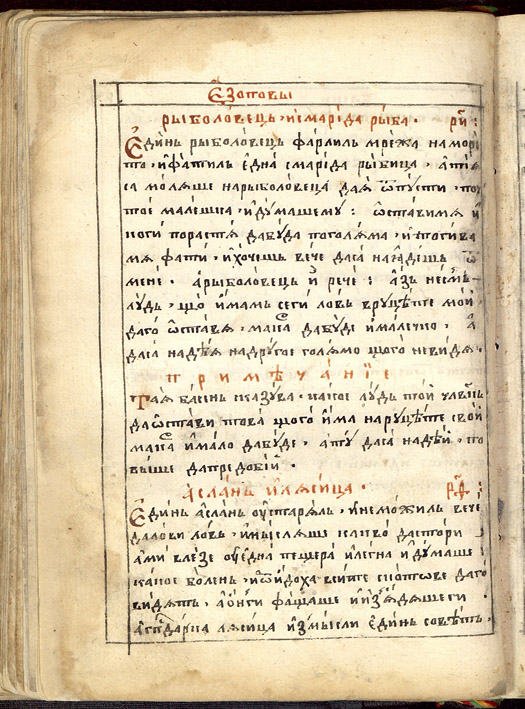 Єзоповы
рыболовець, и смарїда рыба. рг҃ :
Єдинь рыболовець фарлиль мрежа на море
то, и фатиль една смарїда рыбица, а тїѧ
са молѧше на рыболовеца да ѧ ѿпꙋсти, по
тоѐ малешка, и дꙋмаше мꙋ : ѡстави мѧ и
коги порастѧ да бꙋда поголѧма, и тогива
мѧ фати, и хочешь вече да са нагадешь ѿ
мене. а рыболовець и рече : азь несмь
лꙋдь, що имамь сеги ловь врꙋцѣте мои
да го ѡставѧ, макаⷬ да бꙋде и малечко, а
да са надѣѧ на дрꙋгое голѧмо що го невидѧ.
примѣчанїе
Таѧ баснь казꙋва, каное лꙋдь той чл҃вкь
да ѡстави това що го има на рꙋцѣте свой
макаⷬ и мало да бꙋде, а тꙋ да са надѣй, по
выше да предобїй.
асланъ и лѧсица. рд҃ :
Єдинь асланъ ѹстарѧлъ, и неможиль вече
да лови ловь, и мыслѧше какво да стори
ами влезе ѹ една пещера и легна и дꙋмаше
каное болень, и ѿидоха вѝте скотове да го
видѧтъ, а онги фащаше и изѧдаше ги
а гпⷭ҇дарка лѧсица измысли единь совѣтъ.